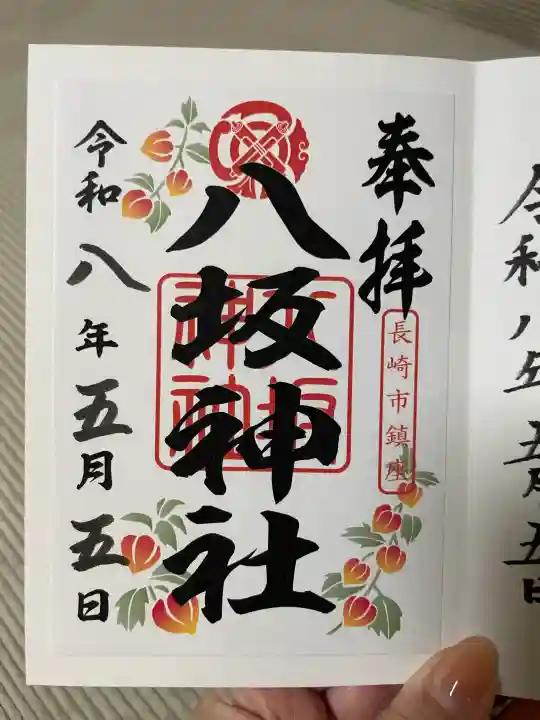 奉拝
長崎市鎮座
八坂神社
八坂神社
令和八年五月五日
令和八年五月五日